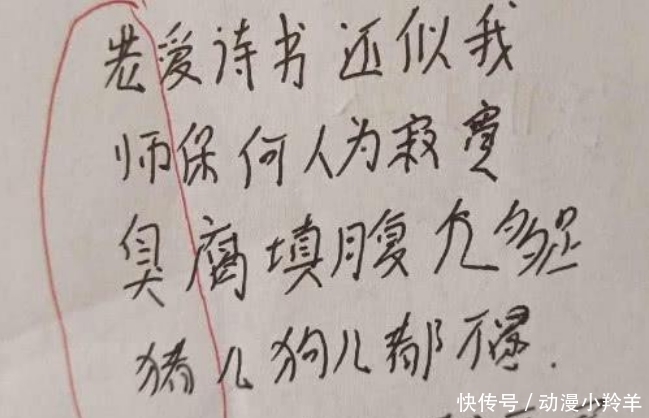 老爱诗书还似我
师保何人为寂
臭腐填腹
猪儿狗儿都不
快传号/动漫小羚羊